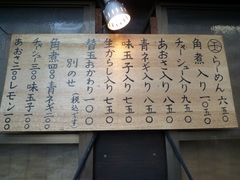 玉 らーめん 六五〇
角煮入り 一〇五〇
チャーシュー入り 九五〇
あおさ入り 八五〇
青ネギ入り 八五〇
味玉子入り 七五〇
生からし入り 七五〇
替玉おかわり 一〇〇
別のせ(税込です)
角煮 四〇〇 青ネギ 二〇〇
チャーシュー 三〇〇 味玉子 一〇〇
あおさ 二〇〇 レモン 一〇〇